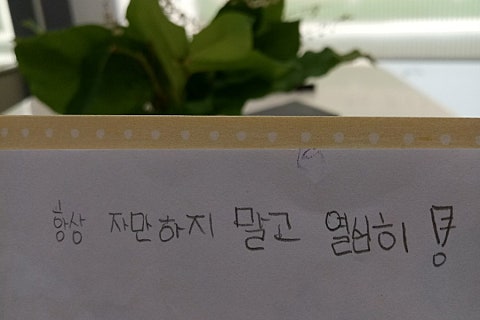 항상 자만하지 말고 열심히!